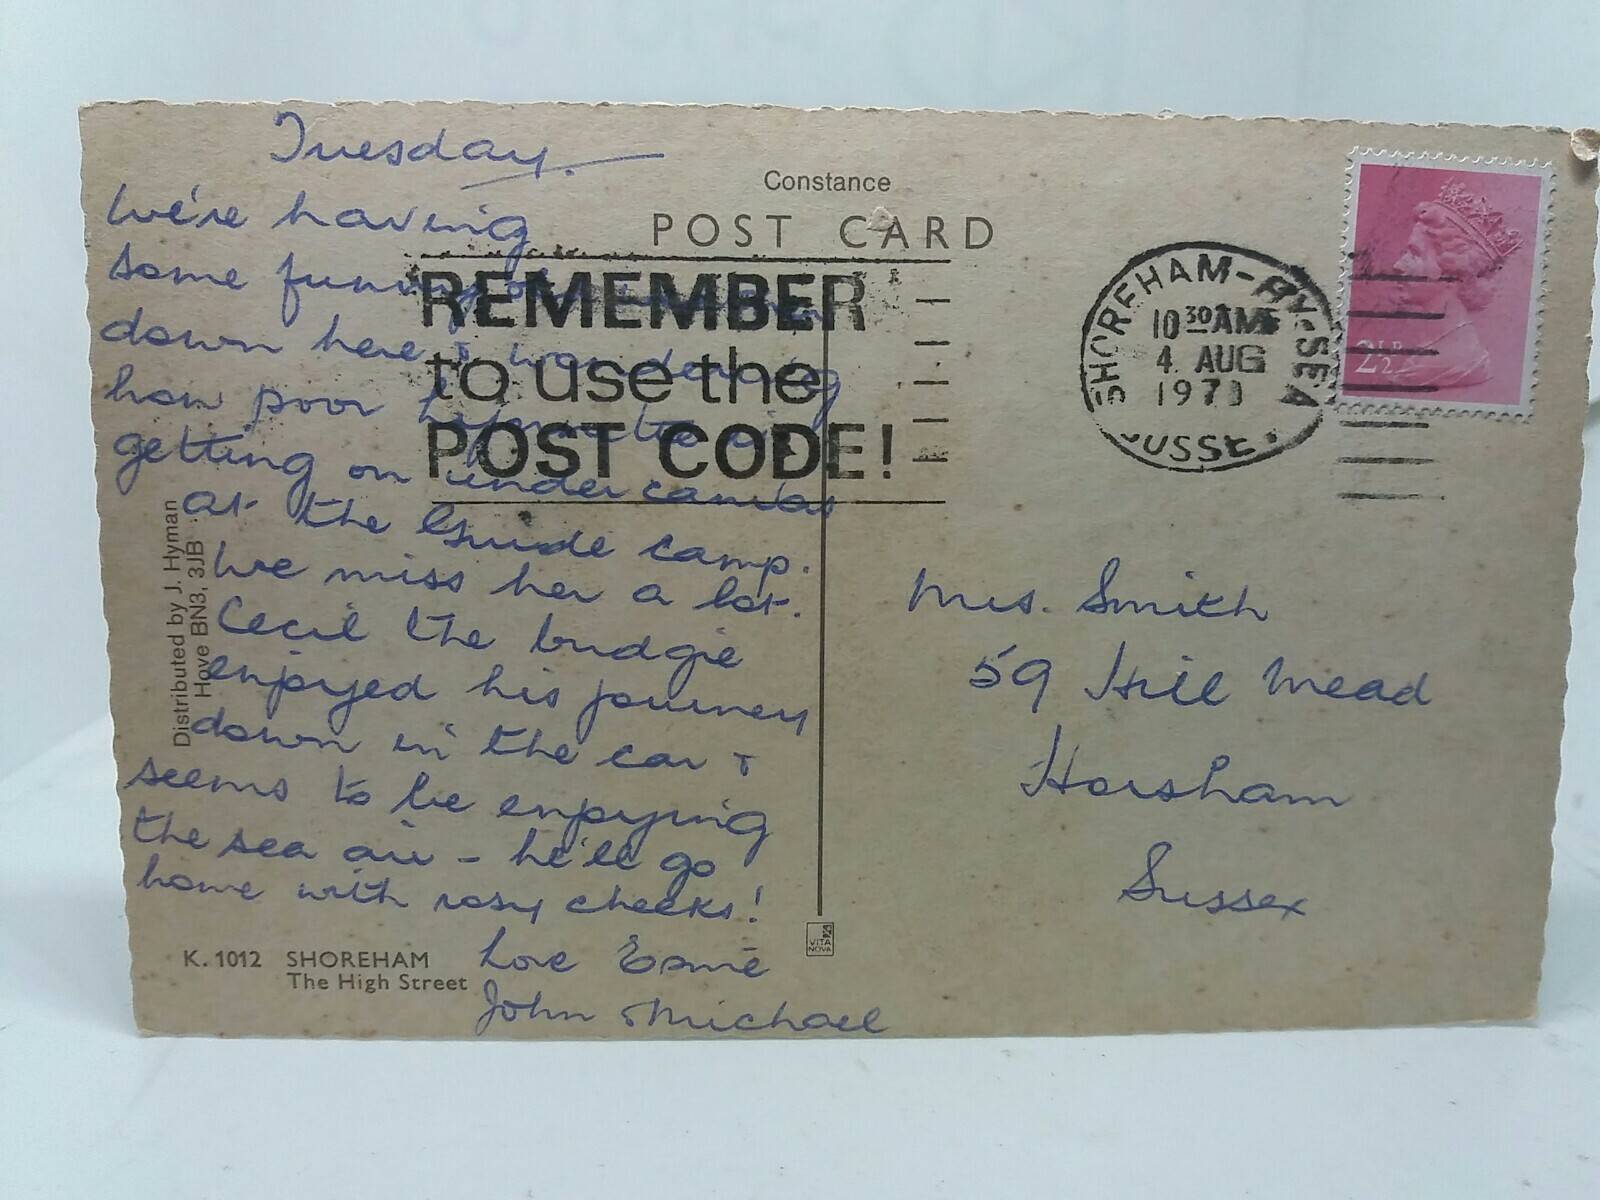 Tuesday.
We're having
some funny
down here & wondering
how poor
getting on under canvas
at the Guide camp.
We miss her a lot.
Cecil the budgie
enjoyed his journey
down in the car &
seems to be enjoying
the sea air - he'll go
home with rosy cheeks!
Love Esmé
John & Michael
Constance
POST CARD
REMEMBER
to use the
POST CODE!
SHOREHAM-BY-SEA
10 30 AM
4 AUG
1971
SUSSEX
2½P
Mrs. Smith
59 Hill Mead
Horsham
Sussex
Distributed by J. Hyman
Hove BN3, 3JB
K. 1012 SHOREHAM
The High Street
VITA
NOVA